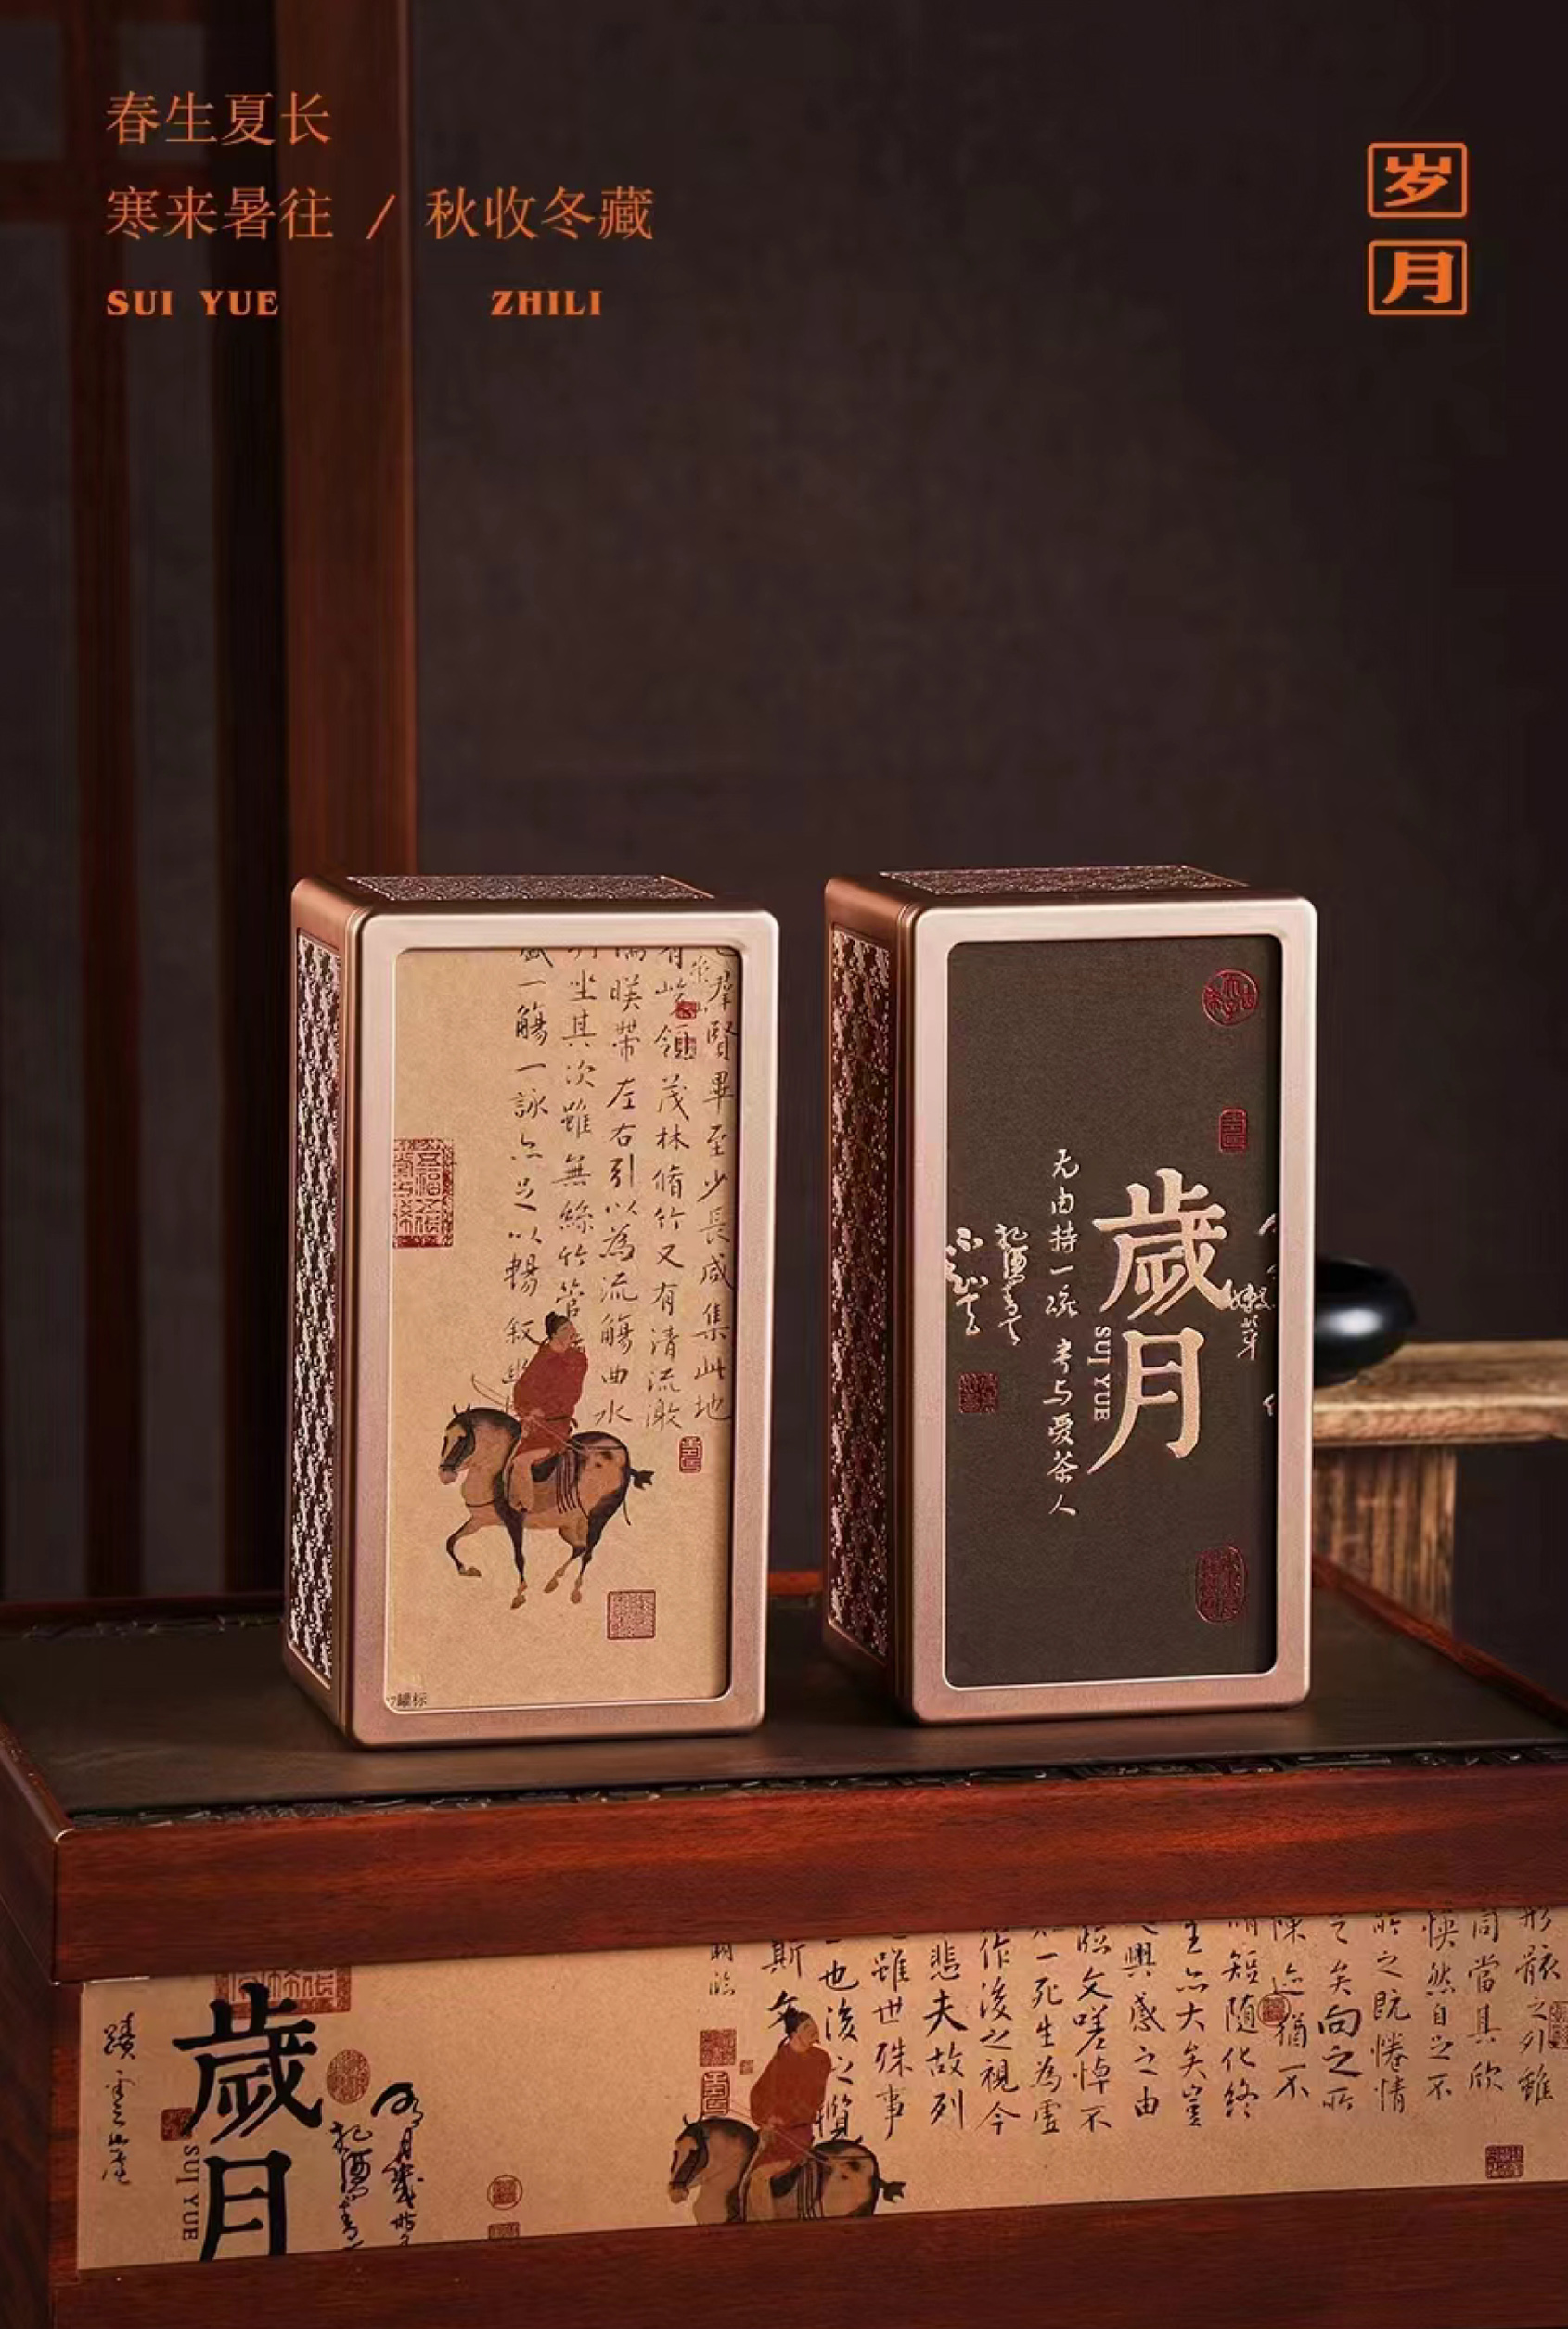 春生夏长
寒来暑往 / 秋收冬藏
SUI YUE ZHILI
岁月
羣賢畢至少長咸集此地
領茂林脩竹又有清流激
湍暎帶左右引以為流觴曲水
列坐其次雖無絲竹管
盛一觴一詠亦足以暢叙幽
罐标
歲月
SUI YUE
无由持一碗 寄与爱茶人
把酒青天
形骸之外雖
同當其欣
怏然自之不
所之既惓情
之矣向之所
陳迹猶不
脩短隨化終
生亦大矣豈
興感之由
臨文嗟悼不
一死生為虛
作後之視今
悲夫故列
雖世殊事
也後之攬
斯文
明月幾時
把酒青
歲月
SUI YUE